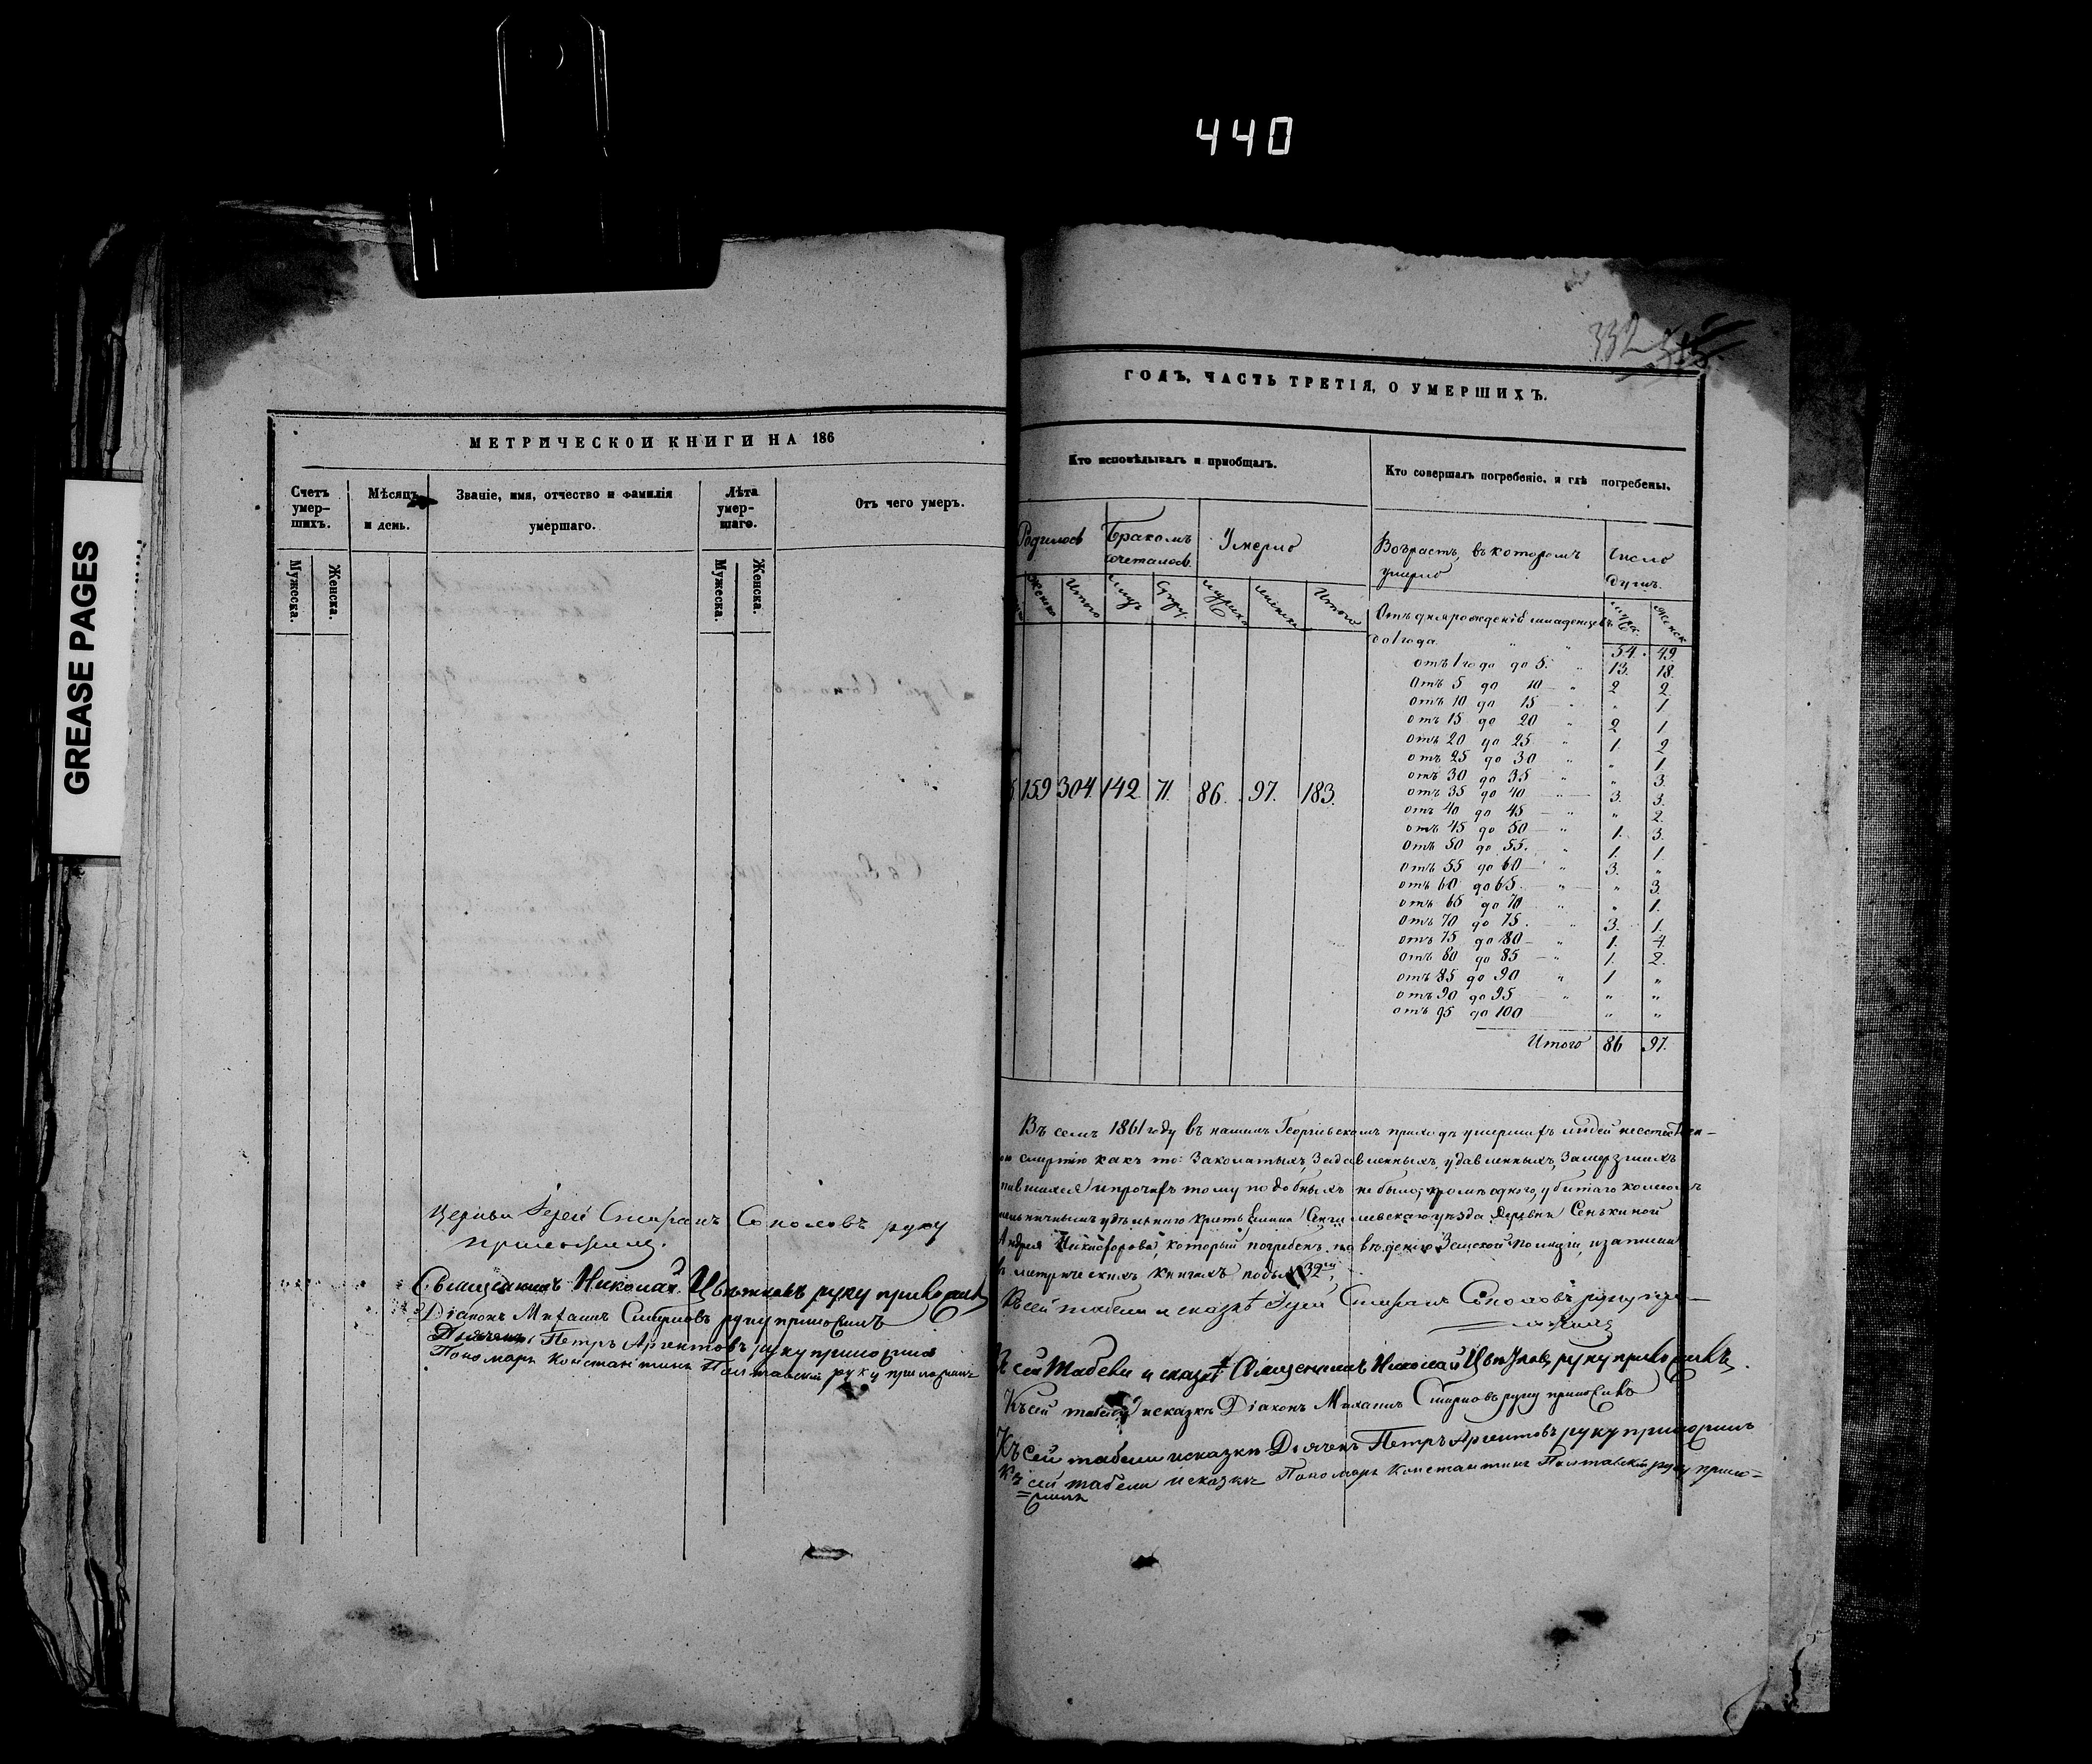 440
GREASE PAGES
332
МЕТРИЧЕСКОЙ КНИГИ НА 186
Счетъ умер-шихъ.
Мѣсяцъ и день.
Званіе, имя, отчество и фамилія умершаго.
Лѣта умер-шаго.
Отъ чего умеръ.
Мужеска.
Женска.
Мужеска.
Женска.
церкви Іерей Стефанъ Соколовъ руку
приложилъ.
Священникъ Николай Цвѣтковъ руку приложилъ
Діаконъ Михаилъ Смирновъ руку приложилъ
Дьячекъ Петръ Аргентовъ руку приложилъ
Пономарь Константинъ Полтавскій руку приложилъ
ГОДЪ, ЧАСТЬ ТРЕТІЯ, О УМЕРШИХЪ.
Кто исповѣдывалъ и пріобщалъ.
Кто совершалъ погребеніе, и гдѣ погребены.
Родилось
Бракомъ сочеталось
Умерло
Возрастъ, въ которомъ умерло
Число душъ.
Женска Итого Муж. Супру. Мужска Женска Итого
Мужск. Женск.
Отъ дня рожденія младенцевъ
до 1 года. " " 54. 49.
отъ 1 года до 5. " 13. 18.
Отъ 5 до 10 — " 2 2.
отъ 10 до 15 — " " 1
отъ 15 до 20 " 2 1.
отъ 20 до 25 — " 1. 2
отъ 25 до 30 " " 1.
отъ 30 до 35 — " " 3.
отъ 35 до 40 — " — 3. 3.
отъ 40 до 45 — " " 2.
отъ 45 до 50 — " 1. 3.
отъ 50 до 55. — " 1. 1.
отъ 55 до 60 — " 3. "
отъ 60 до 65. — " — " 3.
отъ 65 до 70 " " 1.
отъ 70 до 75. — " 3. 1.
отъ 75 до 80 — " 1. 4.
отъ 80 до 85 — " 1. 2.
отъ 85 до 90 " 1 "
отъ 90 до 95 — " " "
отъ 95 до 100 — " "
159 304. 142 71. 86. 97. 183.
Итого 86 97.
Въ семъ 1861 году въ нашемъ Георгіевскомъ приходѣ умершихъ людей неестествен-
смертію какъ то: Заколотыхъ, Задавленныхъ, удавленныхъ, Замерзшихъ
и прочихъ тому подобныхъ не было, кромѣ одного, убитаго колесомъ
мельничнымъ удѣльнаго крестьянина Сенгилевскаго уѣзда деревни Сенькиной
Андрея Никифорова, который погребенъ по вѣденію Земской полиціи, и записанъ
въ метрическихъ книгахъ подъ № 32мъ.
Къ сей табели и сказкѣ Іерей Стефанъ Соколовъ руку при-
ложилъ
Къ сей табели и сказкѣ Священникъ Николай Цвѣтковъ руку приложилъ.
Къ сей табели и сказкѣ Діаконъ Михаилъ Смирновъ руку приложилъ
Къ сей табели и сказкѣ Дьячекъ Петръ Аргентовъ руку приложилъ
Къ сей табели и сказкѣ Пономарь Константинъ Полтавскій руку прило-
=жилъ